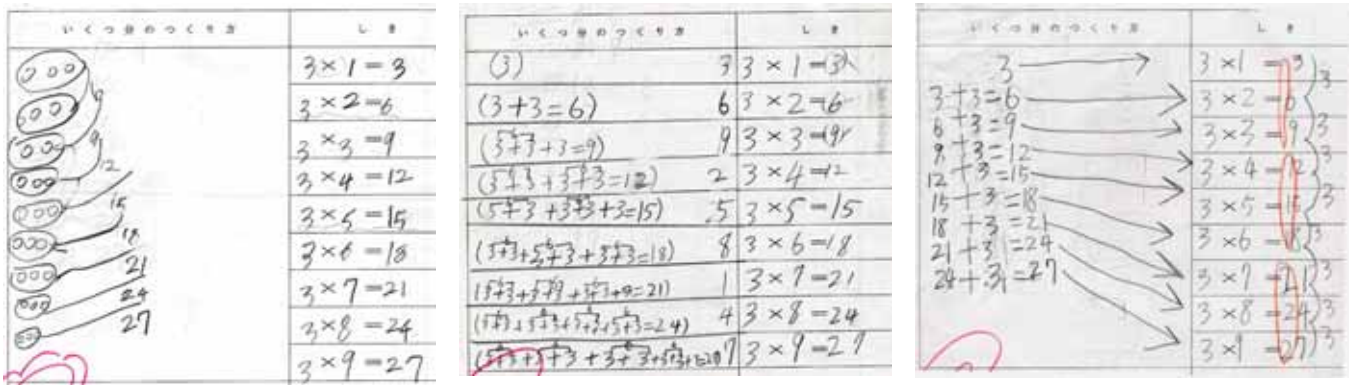 いくつ分のつくり方 しき
3×1=3
3×2=6
6
3×3=9
9
3×4=12
12
3×5=15
15
3×6=18
18
3×7=21
21
3×8=24
24
3×9=27
27
いくつ分のつくり方 しき
(3) 3 3×1=3
(3+3=6) 6 3×2=6
(3+3+3=9) 9 3×3=9
(3+3+3+3=12) 2 3×4=12
(3+3+3+3+3=15) 5 3×5=15
(3+3+3+3+3+3=18) 8 3×6=18
1 3×7=21
4 3×8=24
7 3×9=27
いくつ分のつくり方 しき
3 3×1=3
3+3=6 3×2=6
6+3=9 3×3=9
9+3=12 3×4=12
12+3=15 3×5=15
15+3=18 3×6=18
18+3=21 3×7=21
21+3=24 3×8=24
24+3=27 3×9=27
3
3
3
3
3
3
3
3